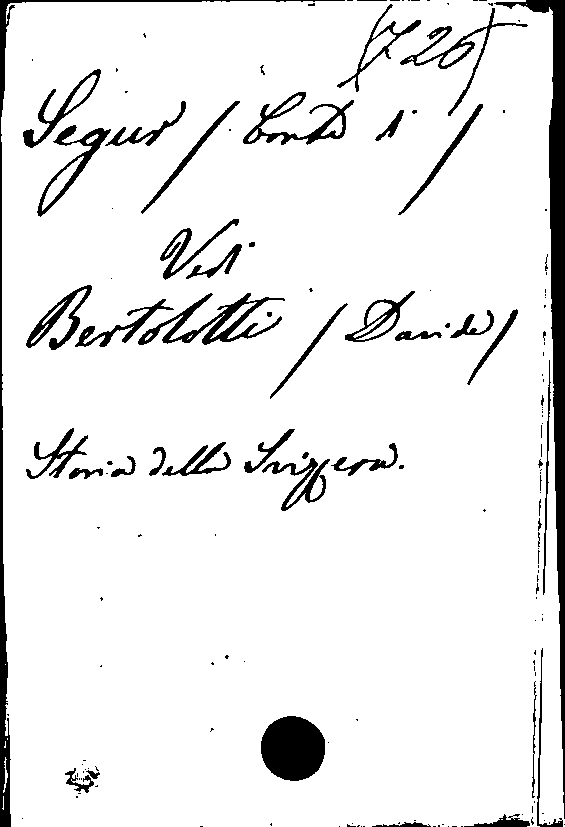 (720)
Segur / Conte di /
Vedi
Bertolotti / Davide /
Storia della Svizzera.